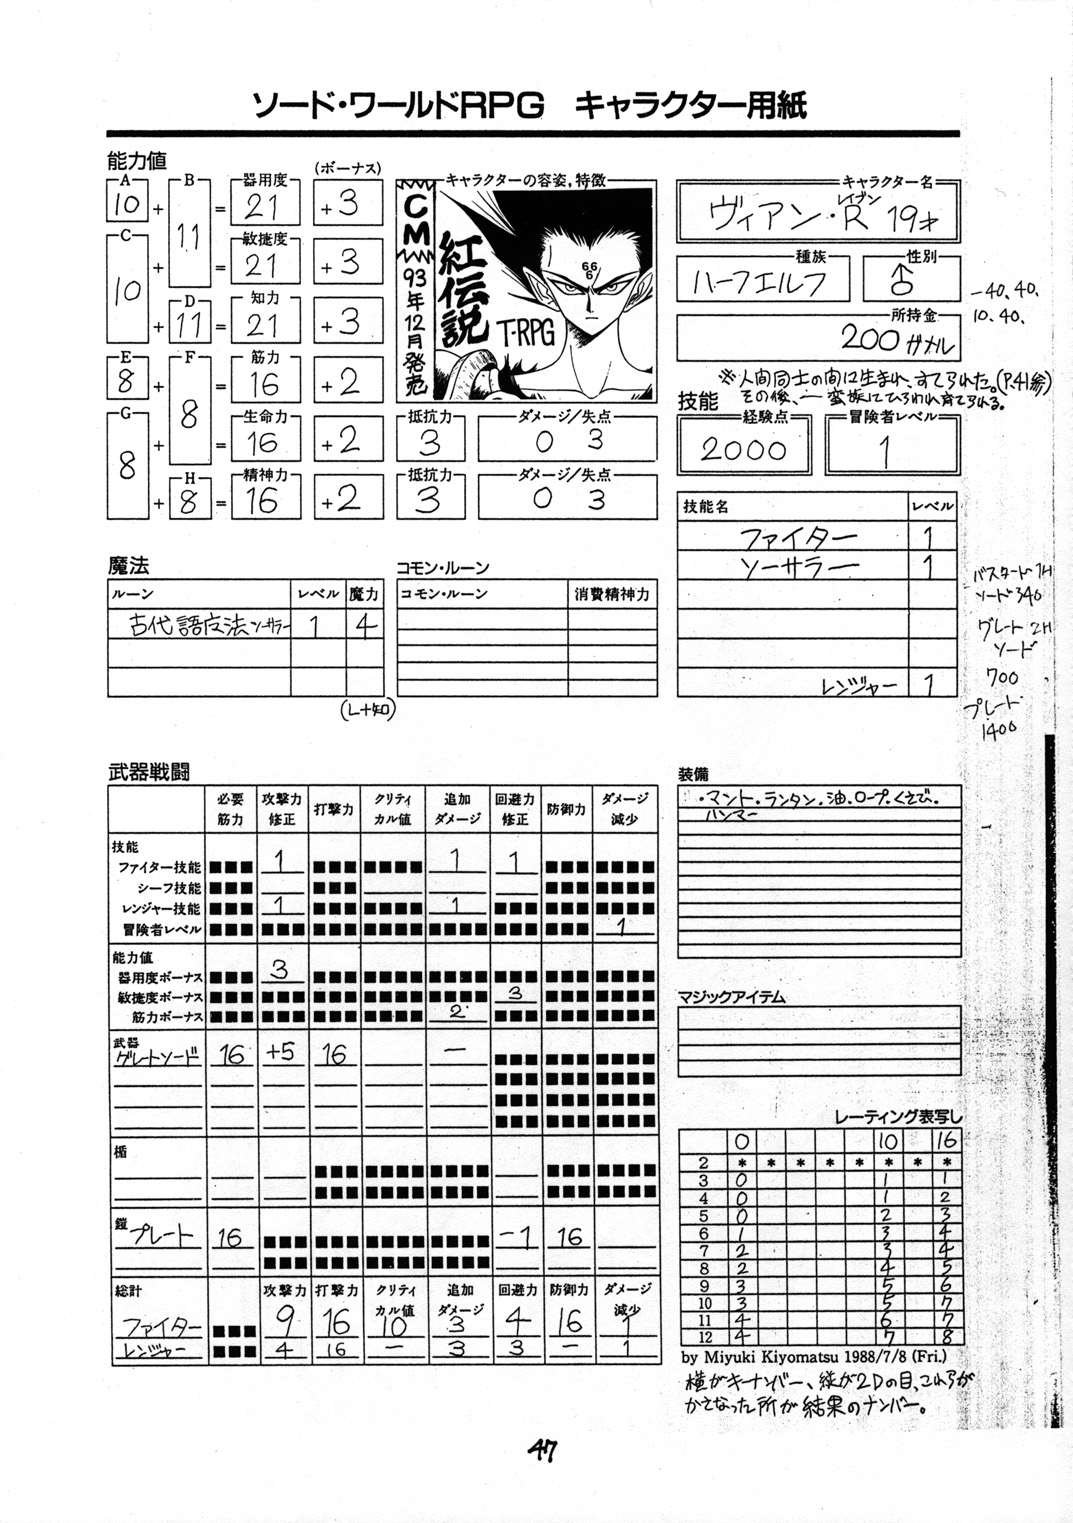 ソード・ワールドRPG キャラクター用紙
能力値
(ボーナス)
A 10 + B 11 = 器用度 21 +3
C 10 + = 敏捷度 21 +3
+ D 11 = 知力 21 +3
E 8 + F 8 = 筋力 16 +2
G 8 + = 生命力 16 +2 抵抗力 3 ダメージ/失点 0 3
+ H 8 = 精神力 16 +2 抵抗力 3 ダメージ/失点 0 3
キャラクターの容姿,特徴
CM
紅伝説
93年12月発売
T-RPG
666
キャラクター名
レイブン
ヴィアン・R 19才
種族 性別
ハーフエルフ ♂
所持金
200 ガメル
-40、40、
10、40、
※人間同士の間に生まれ、すてられた。(P.41参)
その後、一蛮族にひろわれ育てられる。
技能
経験点 冒険者レベル
2000 1
技能名 レベル
ファイター 1
ソーサラー 1
レンジャー 1
バスタード 1H
ソード340
グレート 2H
ソード
700
プレート
1400
魔法
ルーン レベル 魔力
古代語魔法ソーサラー 1 4
(L+知)
コモン・ルーン
コモン・ルーン 消費精神力
武器戦闘
必要筋力 攻撃力修正 打撃力 クリティカル値 追加ダメージ 回避力修正 防御力 ダメージ減少
技能
ファイター技能 1 1 1
シーフ技能
レンジャー技能 1 1
冒険者レベル 1
能力値
器用度ボーナス 3
敏捷度ボーナス 3
筋力ボーナス 2
武器
グレートソード 16 +5 16 ー
楯
鎧
プレート 16 -1 16
総計 攻撃力 打撃力 クリティカル値 追加ダメージ 回避力 防御力 ダメージ減少
ファイター 9 16 10 3 4 16 1
レンジャー 4 16 ー 3 3 ー 1
装備
・マント・ランタン・油・ロープ・くさび・
ハンマー
マジックアイテム
レーティング表写し
0 10 16
2 * * * * * * * *
3 0 1 1
4 0 1 2
5 0 2 3
6 1 3 4
7 2 3 4
8 2 4 5
9 3 5 6
10 3 5 7
11 4 6 7
12 4 7 8
by Miyuki Kiyomatsu 1988/7/8 (Fri.)
横がキーナンバー、縦が2Dの目、これらが
かさなった所が結果のナンバー。
47